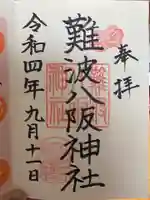 奉拝
難波八阪神社
令和四年九月十一日